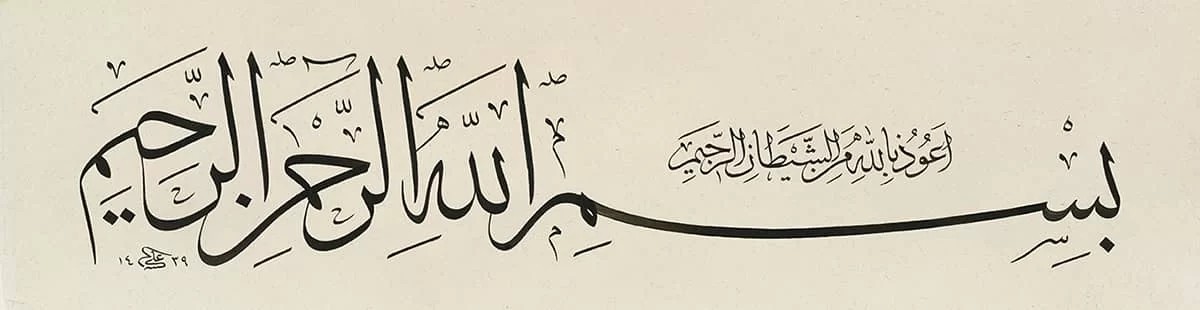 اعوذ بالله من الشيطان الرجيم
بِسْمِ اللهِ الرَّحْمٰنِ الرَّحِيمِ
١٤٣٩